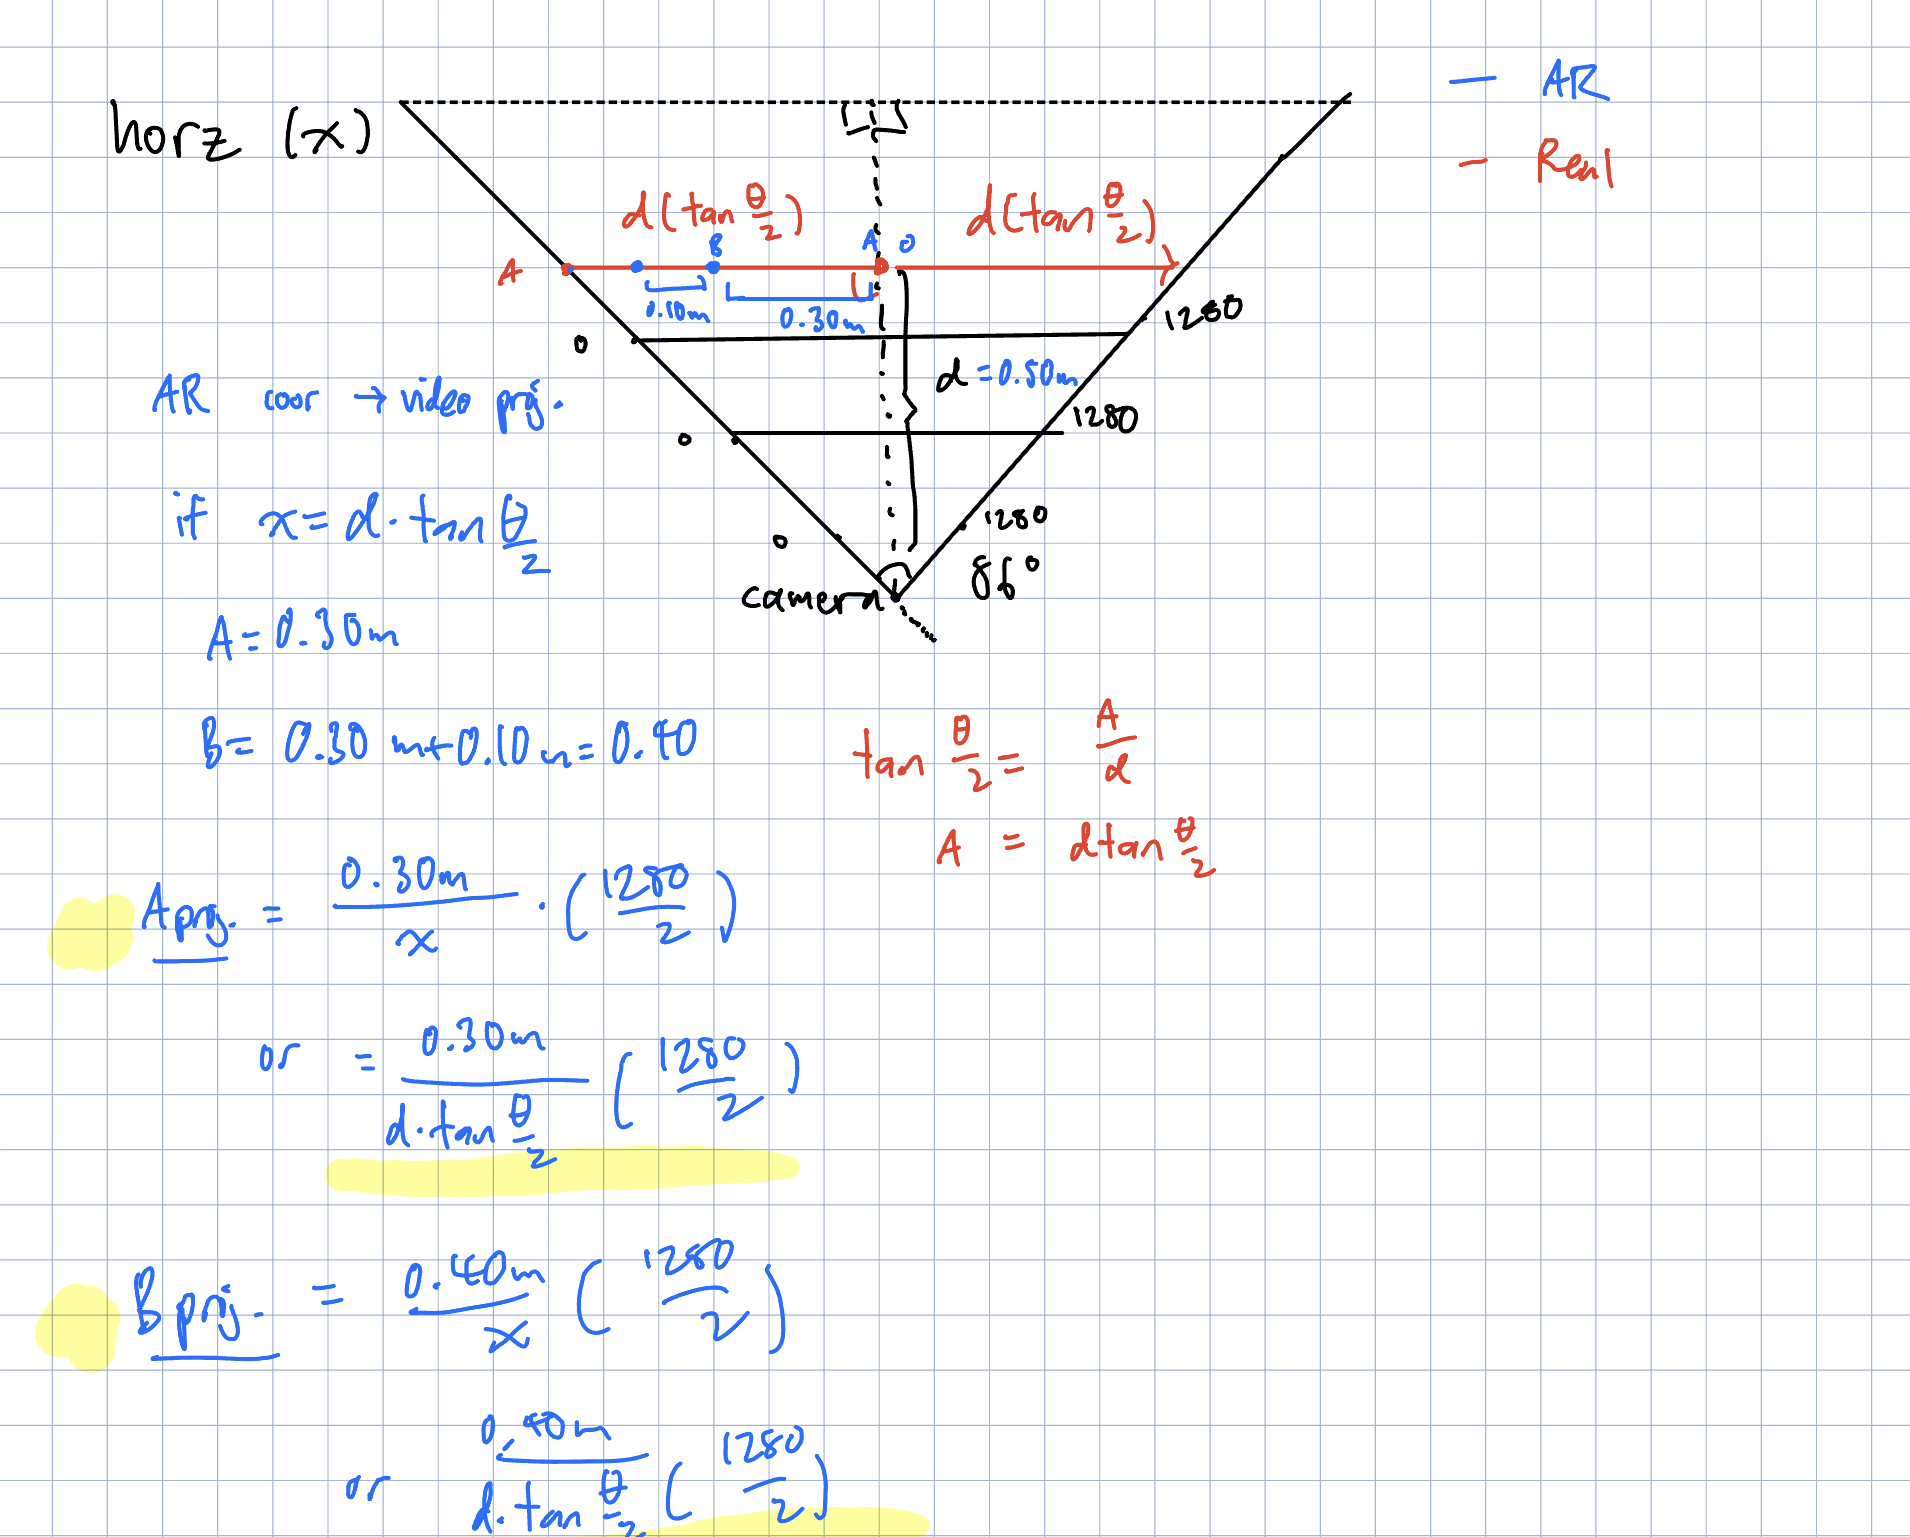 horz (x)
— AR
— Real
d(tan θ/2)
d(tan θ/2)
A
B
A
0
0.10m
0.30m
0
1280
d = 0.50m
0
1280
0
1280
86°
camera
AR coor → video proj.
if x = d · tan θ/2
A = 0.30m
B = 0.30 m + 0.10 m = 0.40
tan θ/2 = A/d
A = d tan θ/2
A proj. = 0.30m/x · (1280/2)
or = 0.30m/d·tan θ/2 (1280/2)
B proj. = 0.40m/x (1280/2)
or 0.40m/d·tan θ/2 (1280/2)